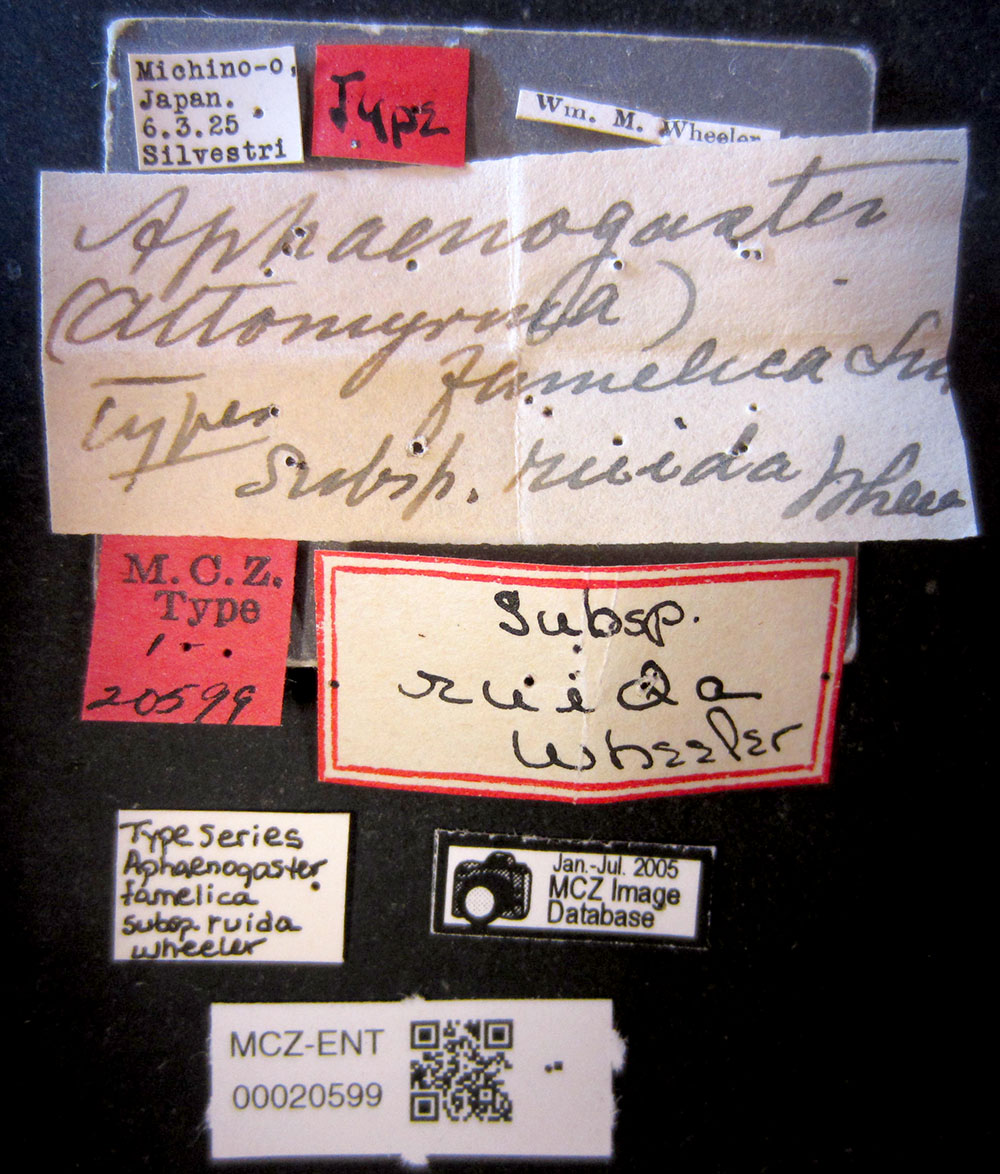 Michino-o,
Japan.
6.3.25
Silvestri
Type
Wm. M. Wheeler
Aphaenogaster
(Attomyrma)
famelica Sm
Types
Subsp. ruida Wheeler
M.C.Z.
Type
1-
20599
Subsp.
ruida
Wheeler
Type Series
Aphaenogaster
famelica
subsp. ruida
wheeler
Jan.-Jul. 2005
MCZ Image
Database
MCZ-ENT
00020599